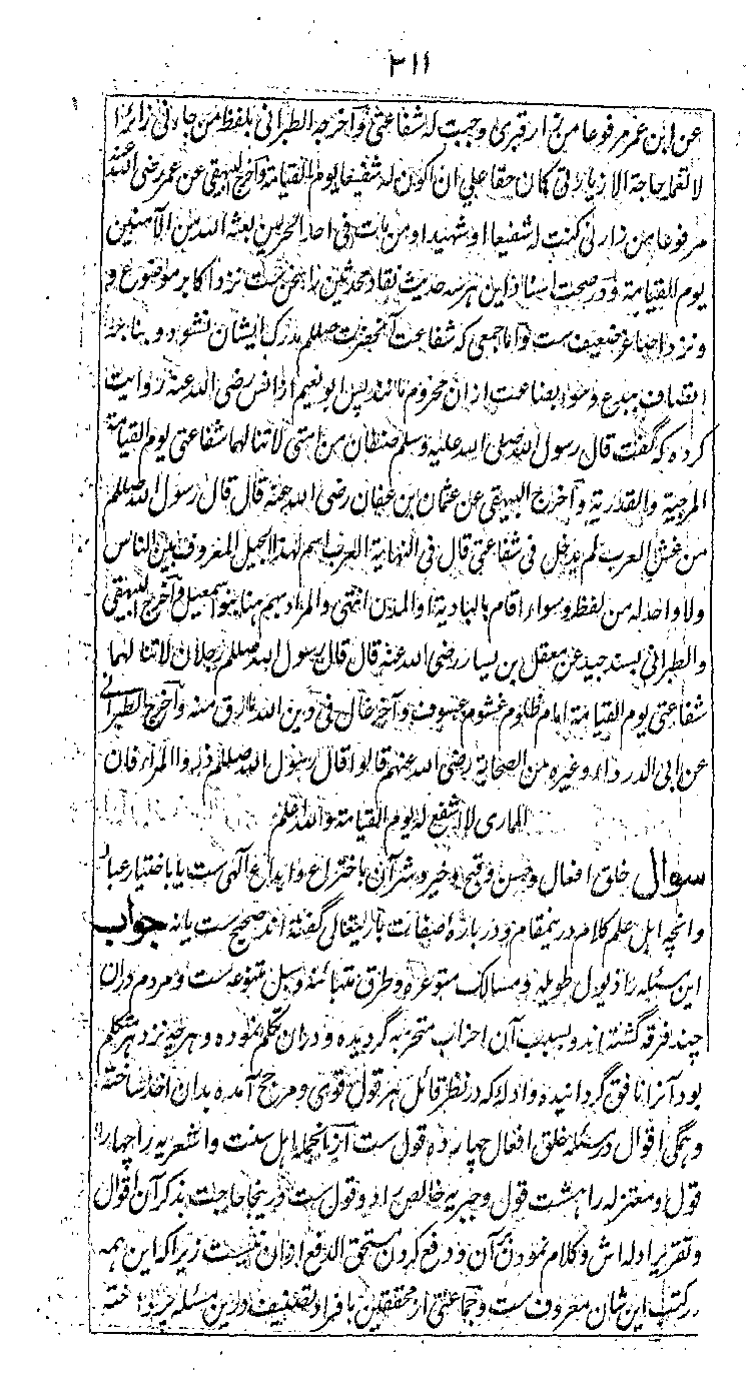 ۲۱۱
عن ابن عمر مرفوعا من زار قبری وجبت له شفاعتی وآخرجه الطبرانی بلفظ من جاءنی زائرا
لا تعمله حاجة الا زیارتی کان حقا علی ان اکون له شفیعا یوم القیامة وآخرج البیهقی عن عمر رضی الله عنه
مرفوعا من زارنی کنت له شفیعا او شهیدا ومن مات فی احد الحرمین بعثه الله من الآمنین
یوم القیامة ودر صحت اسناد این هر سه حدیث نقاد محدثین را سخن ست نزد اکابر موضوع و
ونزد اصاغر ضعیف ست واما جمعی که شفاعت آنحضرت صلعم مدرک ایشان نشود و بنا بر
اتصاف ببدع و سوء بضاعت ازان محروم مانند پس ابو نعیم از انس رضی الله عنه روایت
کرده که گفت قال رسول الله صلی الله علیه وسلم صنفان من امتی لا تنالهما شفاعتی یوم القیامة
المرجیة والقدریة وآخرج البیهقی عن عثمان بن عفان رضی الله عنه قال قال رسول الله صلعم
من غش العرب لم یدخل فی شفاعتی قال فی النهایة العرب اسم لهذا الجیل المعروف بین الناس
ولا واحد له من لفظه وسواء اقام بالبادیة او المدن انتهی والمراد بهم هنا بنو اسمعیل وآخرج البیهقی
والطبرانی بسند جید عن معقل بن یسار رضی الله عنه قال قال رسول الله صلعم رجلان لا تنالهما
شفاعتی یوم القیامة امام ظلوم غشوم عسوف وآخر غال فی دین الله مارق منه وآخرج الطبرانی
عن ابی الدرداء وغیره من الصحابة رضی الله عنهم قالوا قال رسول الله صلعم ذروا المراء فان
المماری لا اشفع له یوم القیامة والله اعلم
سوال خلق افعال وحسن وقبح وخیر وشر آن باختراع وابداع آلهی ست یا باختیار عباد
وانچه اهل علم کلام درینمقام ودرباره صفات باریتعالی گفته اند صحیح ست یا نه جواب
این مسئله را ذیول طویله ومسالک متوعره وطرق متبائنه وسبل متنوعه ست ومردم دران
چند فرقه گشته اند وبسبب آن احزاب متحزبه گردیده ودران تکلم نموده وهرچه نزد هر متکلم
بود آنرا نافق گردانیده وادله که در نظر قائل هر قول قوی ومرجح آمده بدان اخذ ساخته
وهمگی اقوال در مسئله خلق افعال چهارده قول ست ازانجمله اهل سنت واشعریه را چهار
قول ومعتزله را هشت قول وجبریه خالص را دو قول ست درینجا حاجت بذکر آن اقوال
وتقریر ادله اش وکلام نمودن بر آن ودفع کردن مستحق الدفع ازان نیست زیرا که این همه
در کتب این شان معروف ست وجماعتی از محققین بافراد تصنیف درین مسئله پرداخته